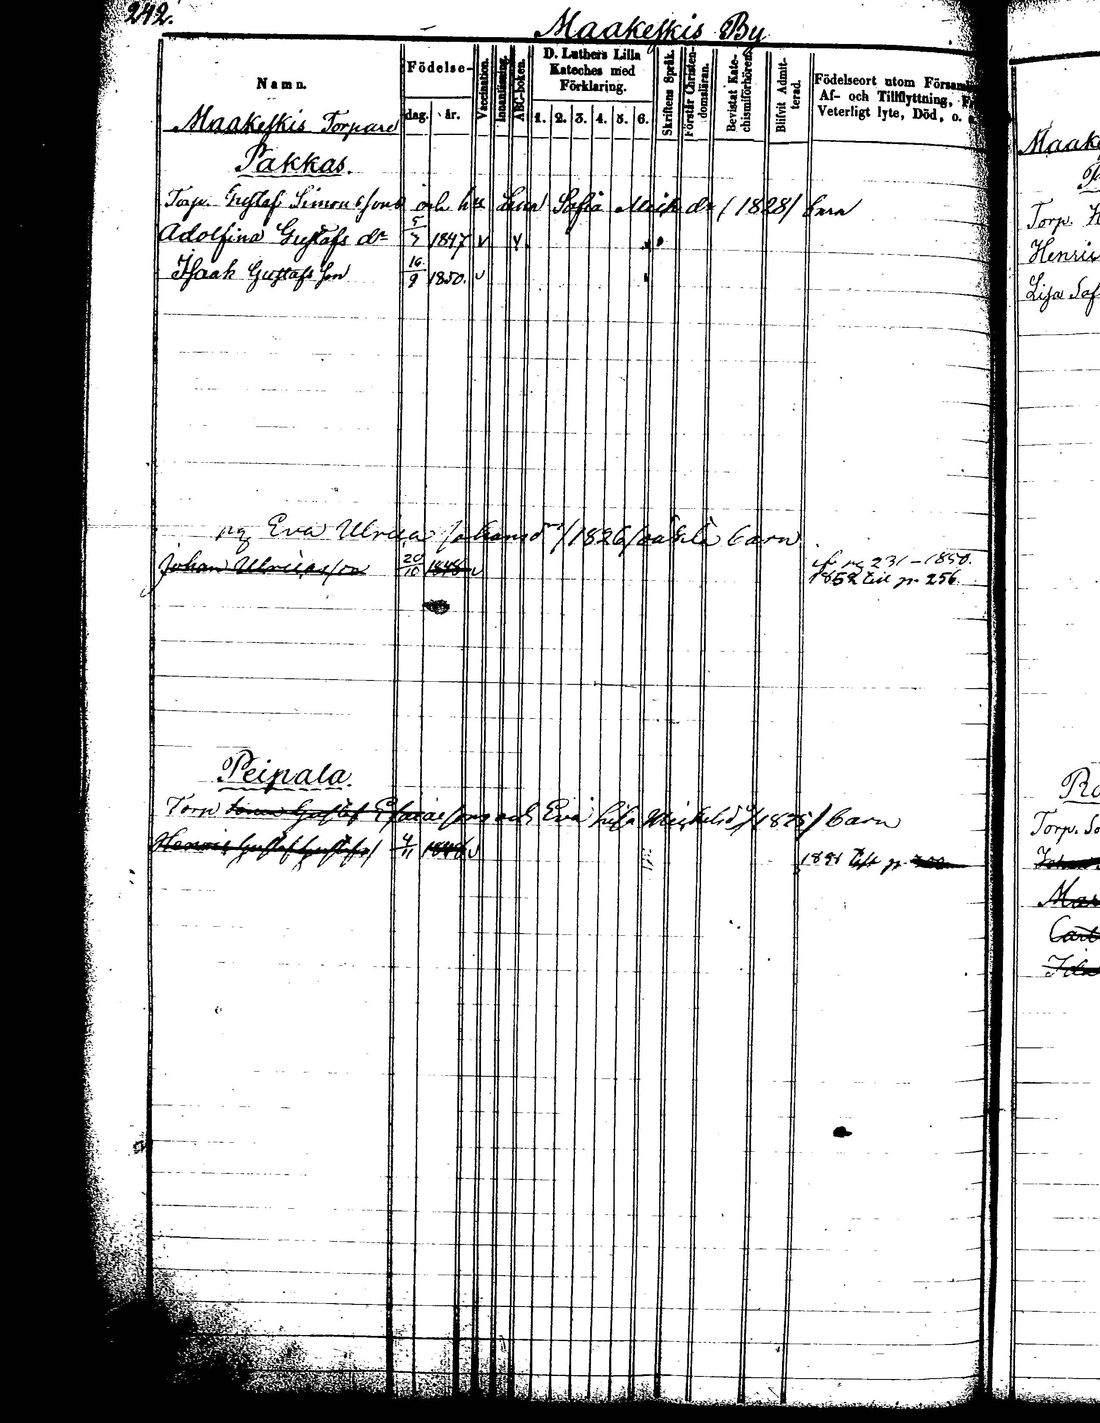 242.
Maakeskis By
Namn.
Födelse-
dag.
år.
Vaccination.
Innanläsning.
ABC-boken.
D. Luthers Lilla
Kateches med
Förklaring.
1. 2. 3. 4. 5. 6.
Skriftens Språk.
Förstår Christen-
domsläran.
Bevistat Kate-
chismiförhören.
Blifvit Admit-
terad.
Födelseort utom Församl
Af- och Tillflyttning, F
Veterligt lyte, Död, o.
Maakeskis Torpare
Pakkas.
Torp. Gustaf Simonssons och hu Lena Sofia Mick dr (1828) barn
Adolfina Gustafs dr 5/7 1847 v v
Isaak Gustafsson 16/9 1850. v
pg Eva Ulrica Johansdr /1826/ oäkta barn
Johan Ulricasson 20/10 1848 v
fr pg 231 - 1850.
1852 till pg 256.
Peipala.
Torp Gustaf Esaiassons och Eva Lisa Michelsd /1825/ barn
Henric Gustaf Gustafss 4/11 1846 v
1851 till pg
Maake
Torp. H
Henric
Lisa Sof
Ra
Torp. So
Johan
Mar
Carl